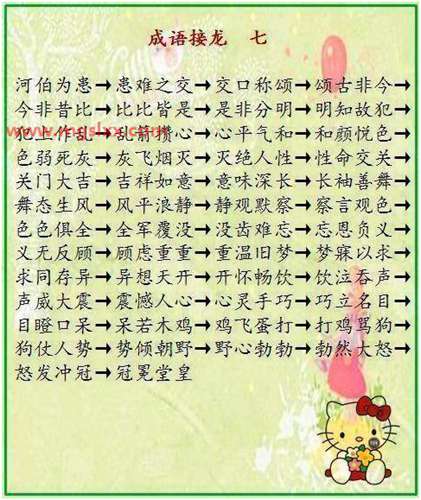 成语接龙 七
河伯为患→患难之交→交口称颂→颂古非今→
今非昔比→比比皆是→是非分明→明知故犯→
犯上作乱→乱箭攒心→心平气和→和颜悦色→
色弱死灰→灰飞烟灭→灭绝人性→性命交关→
关门大吉→吉祥如意→意味深长→长袖善舞→
舞态生风→风平浪静→静观默察→察言观色→
色色俱全→全军覆没→没齿难忘→忘恩负义→
义无反顾→顾虑重重→重温旧梦→梦寐以求→
求同存异→异想天开→开怀畅饮→饮泣吞声→
声威大震→震憾人心→心灵手巧→巧立名目→
目瞪口呆→呆若木鸡→鸡飞蛋打→打鸡骂狗→
狗仗人势→势倾朝野→野心勃勃→勃然大怒→
怒发冲冠→冠冕堂皇